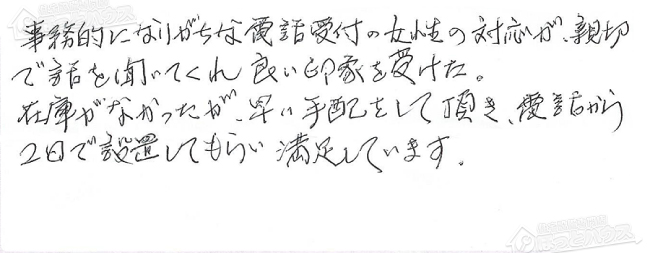 事務的になりがちな電話受付の女性の対応が、親切
で話を聞いてくれ良い印象を受けた。
在庫がなかったが、早い手配をして頂き、電話から
2日で設置してもらい満足しています。